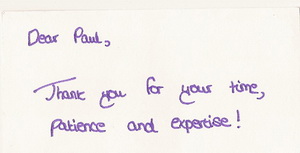 Dear Paul,
Thank you for your time,
patience and expertise!